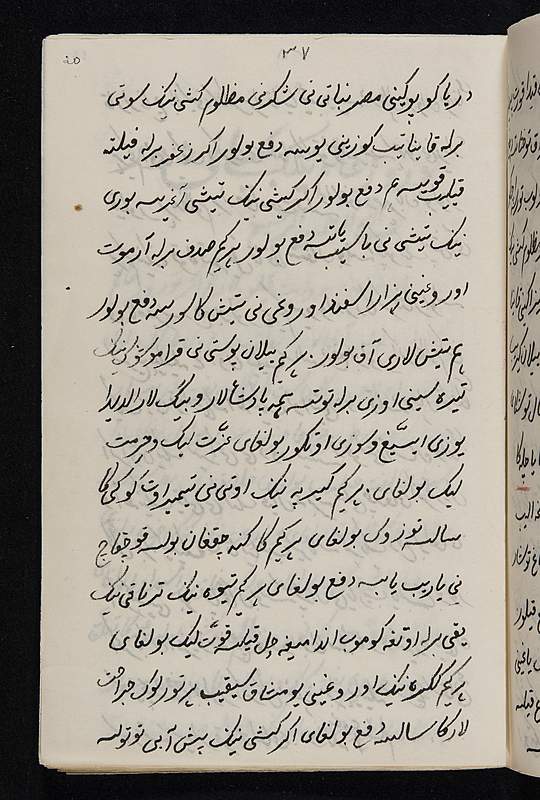 ٣٧
دریا کو پوکینی مصر نباتی نی شکرنی مظلوم کشی نینک سوتی
برله قایناتیب کوزینی یوسه دفع بولور اکر زعفر برله فیلته
قیلیب قویسه هم دفع بولور اکر کیشی نینک تیشی آغریسه بوری
نینک تیشی نی باسیب یاتسه دفع بولور هر کیم صدف برله آرموت
اوروغینی هزار اسفند اوروغی نی تیش کا کورسه دفع بولور
هم تیش لاری آق بولور . هر کیم ییلان پوستی نی قرا موشوک نینک
تیره سینی اوزی برله توتسه همه پادشاهلار و بیک لار الدیدا
یوزی ایسیغ و سوزی اوتکور بولغای عزت لیک و حرمت
لیک بولغای . هر کیم کیرپه نینک اوتی نی
سالسه توزوک بولغای هر کیم کا کنه چققان بولسه قورچقاج
نی یاریب یابسه دفع بولغای هر کیم تیوه نینک ترناقی نینک
یقی برله اوتغه کویدوروب اندامیغه چل قیلسه قوت لیک بولغای
هر کیم نینک اوروغینی یومشاق سیقیب هر تورلوک جراحت
لار کا سالسه دفع بولغای اکر کیشی نینک پیش آبی توتولسه